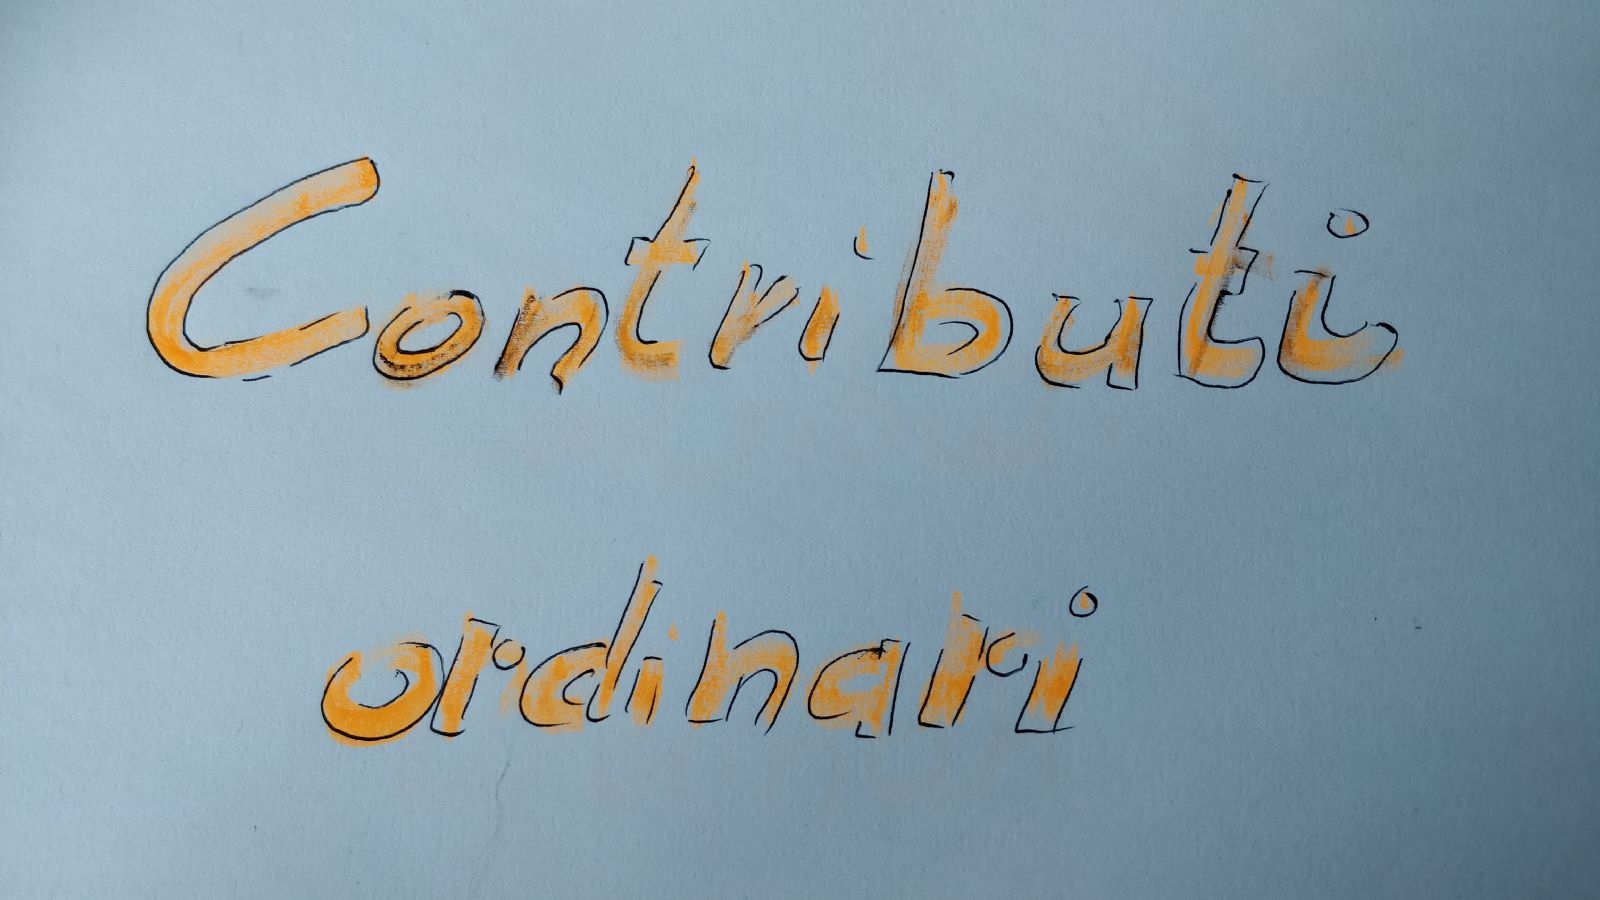 Contributi
ordinari